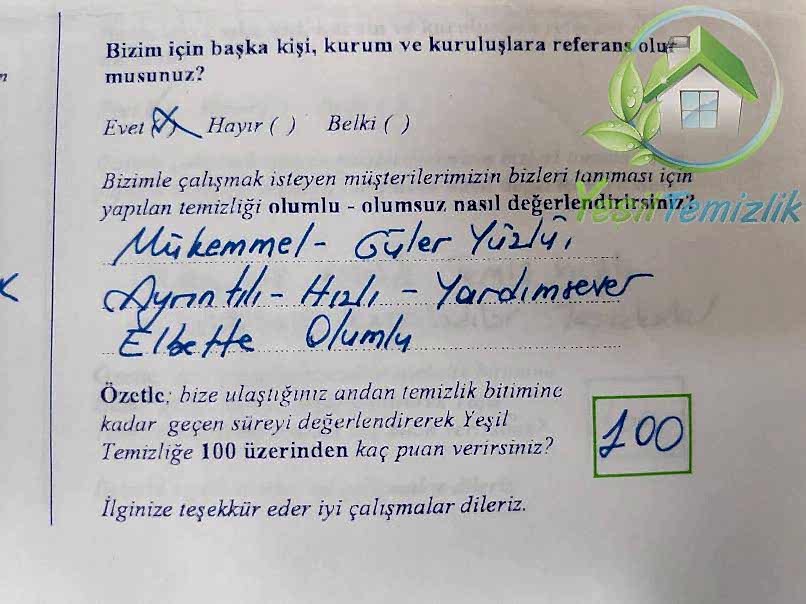 Bizim için başka kişi, kurum ve kuruluşlara referans olur
musunuz?
Evet (X) Hayır ( ) Belki ( )
Bizimle çalışmak isteyen müşterilerimizin bizleri tanıması için
yapılan temizliği olumlu - olumsuz nasıl değerlendirirsiniz?
Yeşil Temizlik
Mükemmel - Güler Yüzlü,
Ayrıntılı - Hızlı - Yardımsever
Elbette Olumlu
Özetle; bize ulaştığınız andan temizlik bitimine
kadar geçen süreyi değerlendirerek Yeşil
Temizliğe 100 üzerinden kaç puan verirsiniz?
100
İlginize teşekkür eder iyi çalışmalar dileriz.